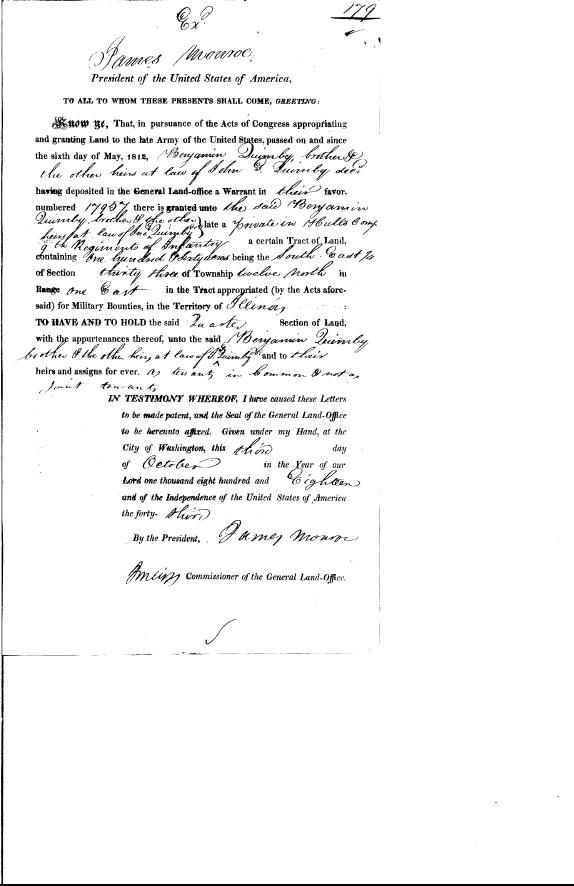 179
Exd
James Monroe,
President of the United States of America,
TO ALL TO WHOM THESE PRESENTS SHALL COME, GREETING:
Know ye, That, in pursuance of the Acts of Congress appropriating
and granting Land to the late Army of the United States, passed on and since
the sixth day of May, 1812, Benjamin Quimby, brother &
the other heirs at law of John Quimby decd
having deposited in the General Land-office a Warrant in their favor.
numbered 17957, there is granted unto the said Benjamin
Quimby, brother & the other
heirs at law of Jno Quimby decd } late a private in Hulls Comp
9th Regiments of Infantry a certain Tract of Land,
containing One hundred & sixty acres being the South East 1/4
of Section thirty three of Township twelve North in
Range One East in the Tract appropriated (by the Acts afore-
said) for Military Bounties, in the Territory of Illinois :
TO HAVE AND TO HOLD the said Quarter Section of Land,
with the appurtenances thereof, unto the said Benjamin Quimby
brother & the other heirs at law of Quimby and to their
heirs and assigns for ever. as tenants in Common & not as
joint tenants
IN TESTIMONY WHEREOF, I have caused these Letters
to be made patent, and the Seal of the General Land-Office
to be hereunto affixed. Given under my Hand, at the
City of Washington, this third day
of October in the Year of our
Lord one thousand eight hundred and Eighteen
and of the Independence of the United States of America
the forty- third
By the President, James Monroe
Commissioner of the General Land-Office.